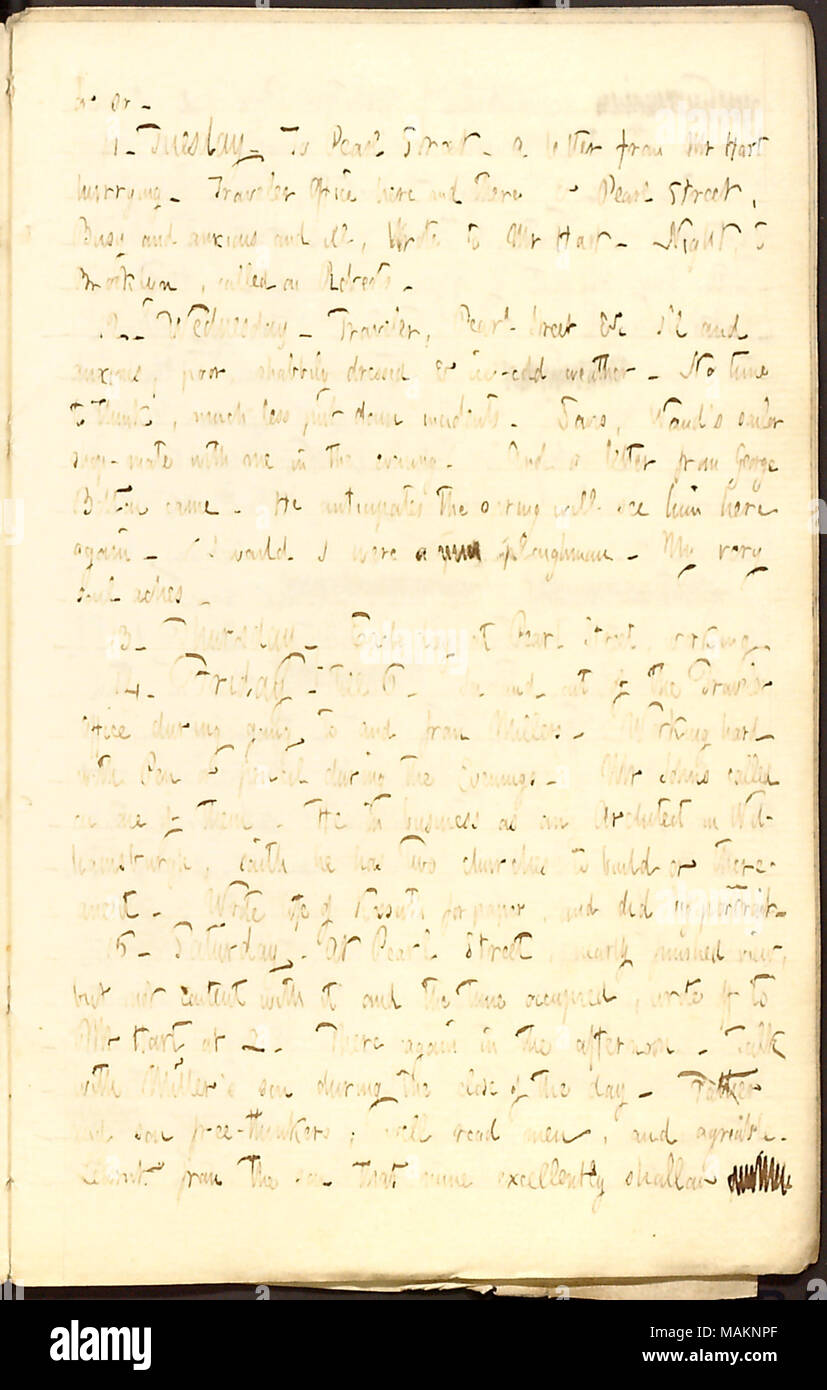 or
11. Tuesday. To Pearl Street. a letter from Mr Hart
hurrying. Traveler Office here and there & Pearl Street,
Busy and anxious and ill, Wrote to Mr Hart. Night, to
Brooklyn, called on Roberts.
12. Wednesday. Traveler, Pearl Street &c. Ill and
anxious, poor, shabbily dressed & ice-cold weather. No time
to think, much less put down incidents. Waud's sailor
mate with me in the evening. And a letter from George
Bolton came. He anticipates the spring will see him here
again. I would I were a ploughman. My very
soul aches.
13. Thursday. at Pearl Street, working
14. Friday. Till 5. In and out of the Traveler
Office during going to and from Millers. Working hard
with Pen & pencil during the Evenings. Mr Johns called
on one of them. He in business as an Architect in Wil-
liamsburgh, saith he has two churches to build or there-
anent. Wrote life of Kossuth for paper, and did up portrait.
15. Saturday. At Pearl Street, nearly finished view,
but not content with it and the time occupied, write of to
Mr Hart at 2. There again in the afternoon. Talk
with Miller's son during the close of the day. Father
and son free-thinkers, well read men, and agreeable.
Learnt from the son that mine excellently shallow
alamy
Image ID: MAKNPF
www.alamy.com